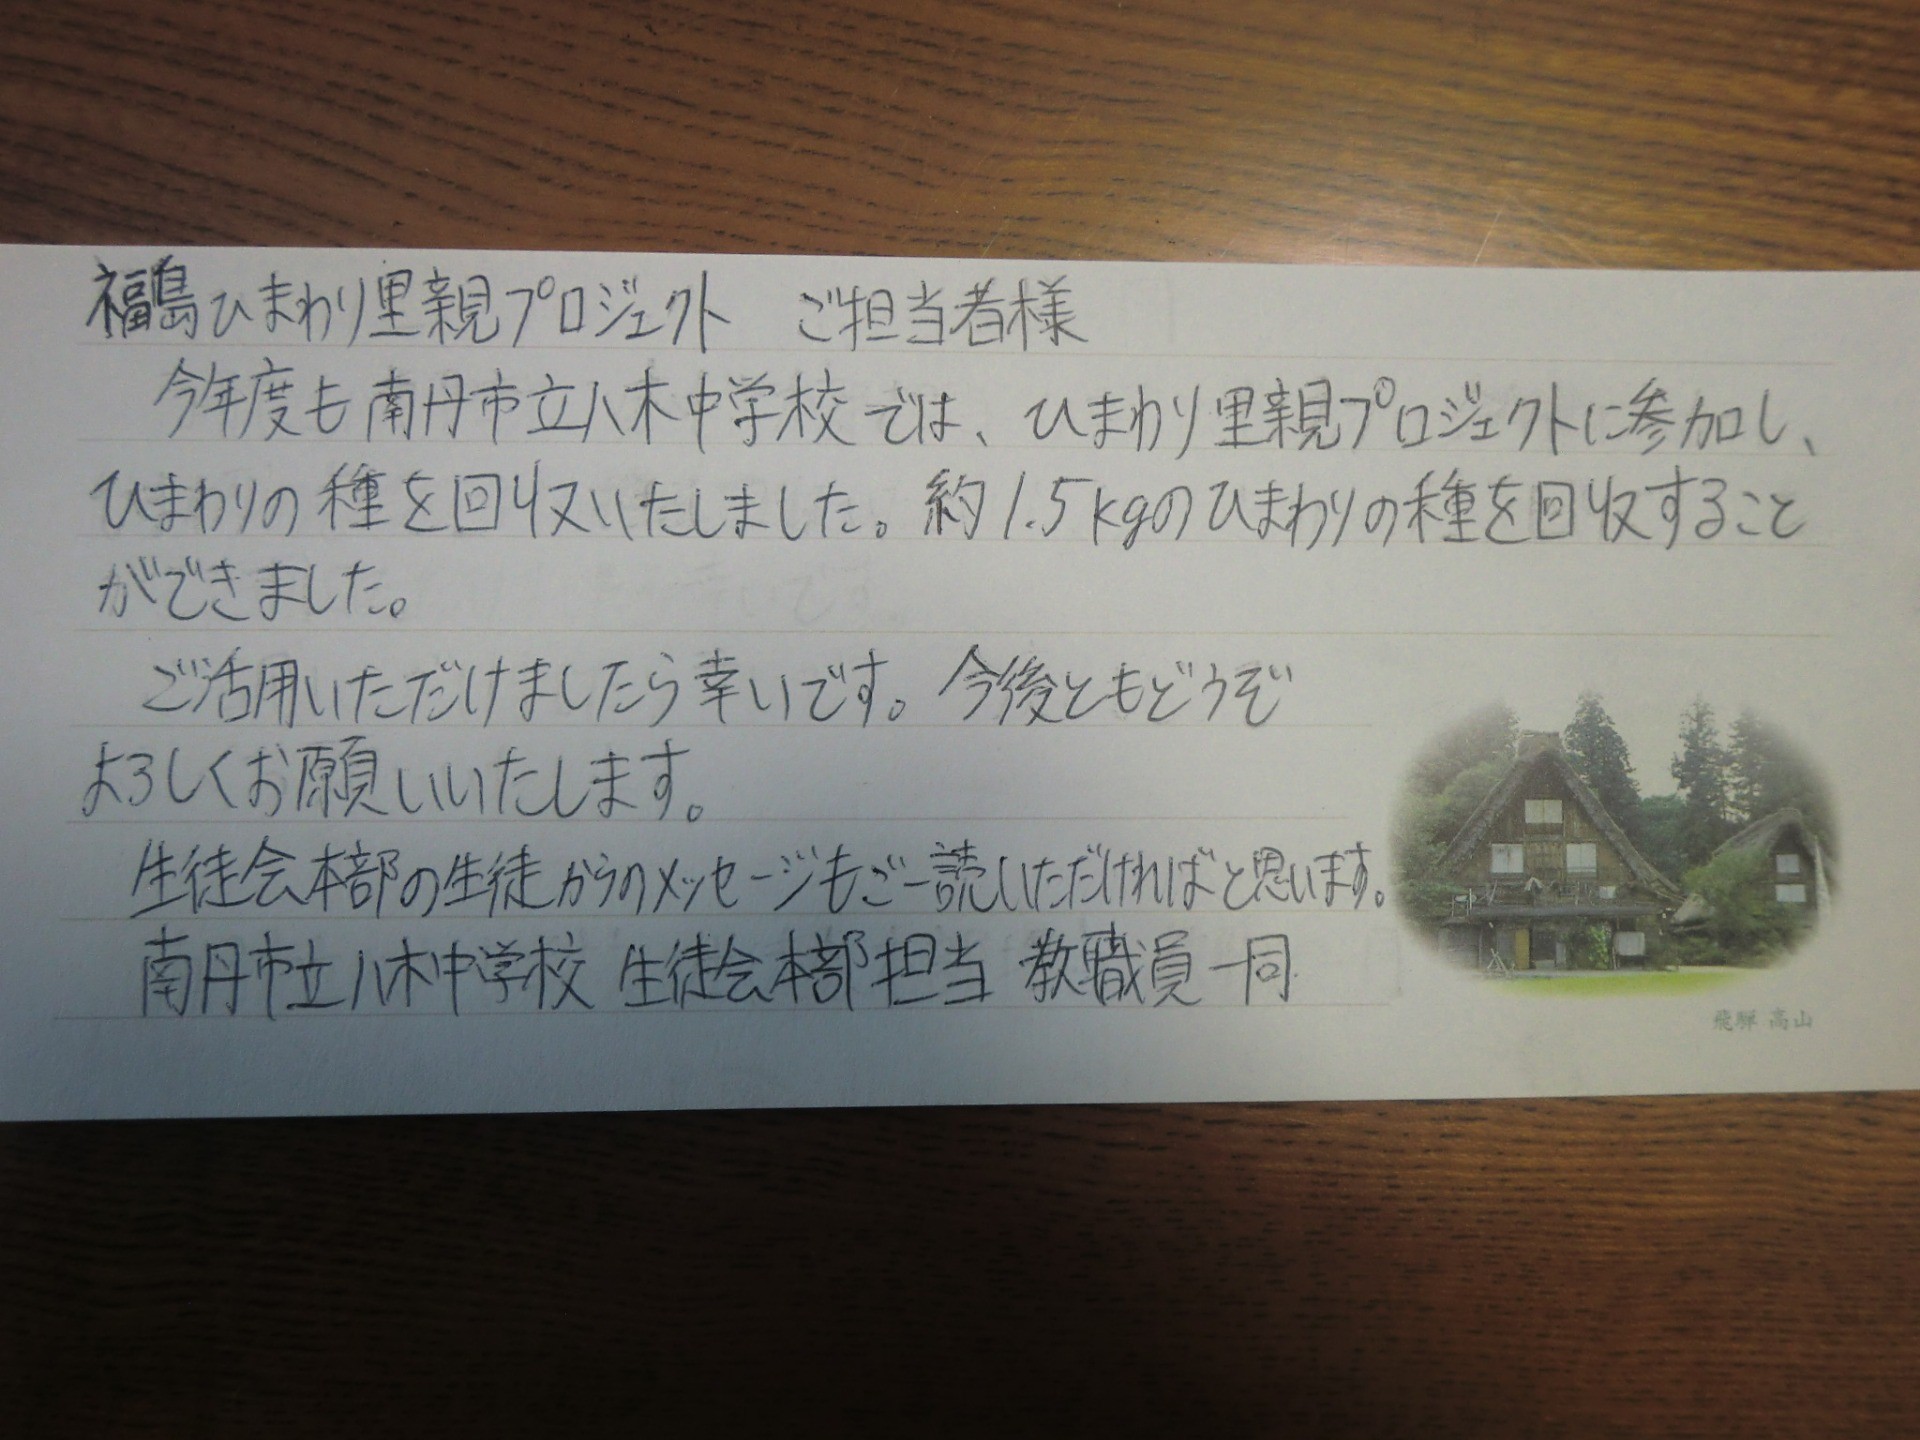 福島ひまわり里親プロジェクト　ご担当者様
今年度も南丹市立八木中学校では、ひまわり里親プロジェクトに参加し、
ひまわりの種を回収いたしました。約1.5kgのひまわりの種を回収すること
ができました。
ご活用いただけましたら幸いです。今後ともどうぞ
よろしくお願いいたします。
生徒会本部の生徒からのメッセージもご一読いただければと思います。
南丹市立八木中学校 生徒会本部担当 教職員一同
飛騨 高山